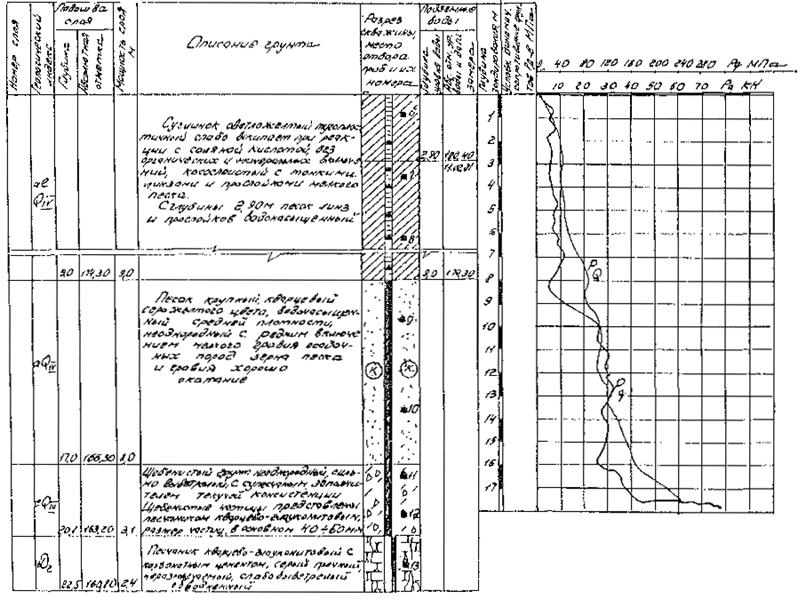 Номер слоя
Геологический индекс
Подошва слоя
Глубина
Абсолютная отметка
Мощность слоя м
Описание грунта
Разрез скважины, место отбора проб и их номера
Подземные воды
Глубина
замера
Глубина зондирования, м
0 40 80 120 160 200 240 280 Pq МПа
0 10 20 30 40 50 60 70 PQ кН
Суглинок светложелтый
слабо вскипает при реак-
ции с соляной кислотой, без
органических и минеральных включе-
ний, косослоистый с тонкими
линзами и прослойками мелкого
песка.
С глубины 2,90м песок линз
и прослойков водонасыщенный
аℓ QIV
2,90 180,40
6
7
8
9,0 174,30 9,0
9,0 174,30
Песок крупный, кварцевый
серожелтого цвета, водонасыщен-
ный средней плотности,
неоднородный с редким включе-
нием мелкого гравия осадоч-
ных пород зерна песка
и гравия хорошо
окатание
aQIV
К К
9
10
17,0 166,30 8,0
Щебенистый грунт неоднородный, силь-
но выветрелый, с супесчаным заполни-
телем текучей консистенции
Щебенистые частицы представлены
песчаником кварцево-глауконитовым,
размер частиц в основном 40÷60мм
eQIV
11
12
20,1 163,20 3,1
Песчаник кварцево-глауконитовый с
карбонатным цементом, серый прочный,
неразмягчаемый, слабовыветрелый
D2
13
22,5 160,80 2,4
1
2
3
4
5
6
7
8
9
10
11
12
13
14
15
16
17
PQ
Pq